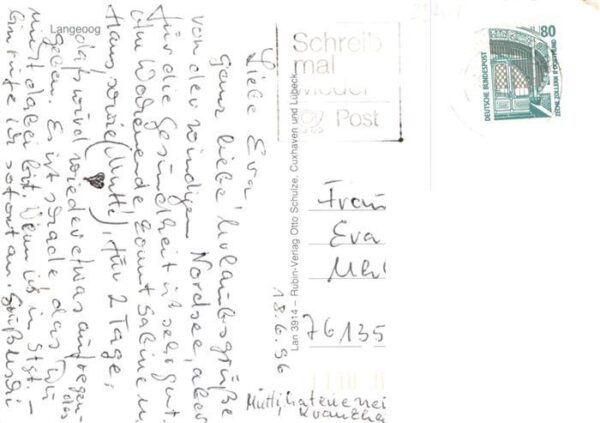 Langeoog
18.6.96
Liebe Eva
ganz liebe Urlaubsgrüße
von der windigen Nordsee, aber
für die Gesundheit ist sehr gut.
Am Wochenende kommt Sabine u.
Hans, sowie (Mutti), für 2 Tage,
das wird wieder etwas aufregen-
geben. Es ist schade das Du
nicht dabei bist. Wenn ich in
rufe ich sofort an.
Mutti,
Lan 3914 – Rubin-Verlag Otto Schulze, Cuxhaven und Lübeck
Schreib
mal
wieder
Post
80
DEUTSCHE BUNDESPOST
ZECHE ZOLLERN II DORTMUND
Frau
Eva
76135